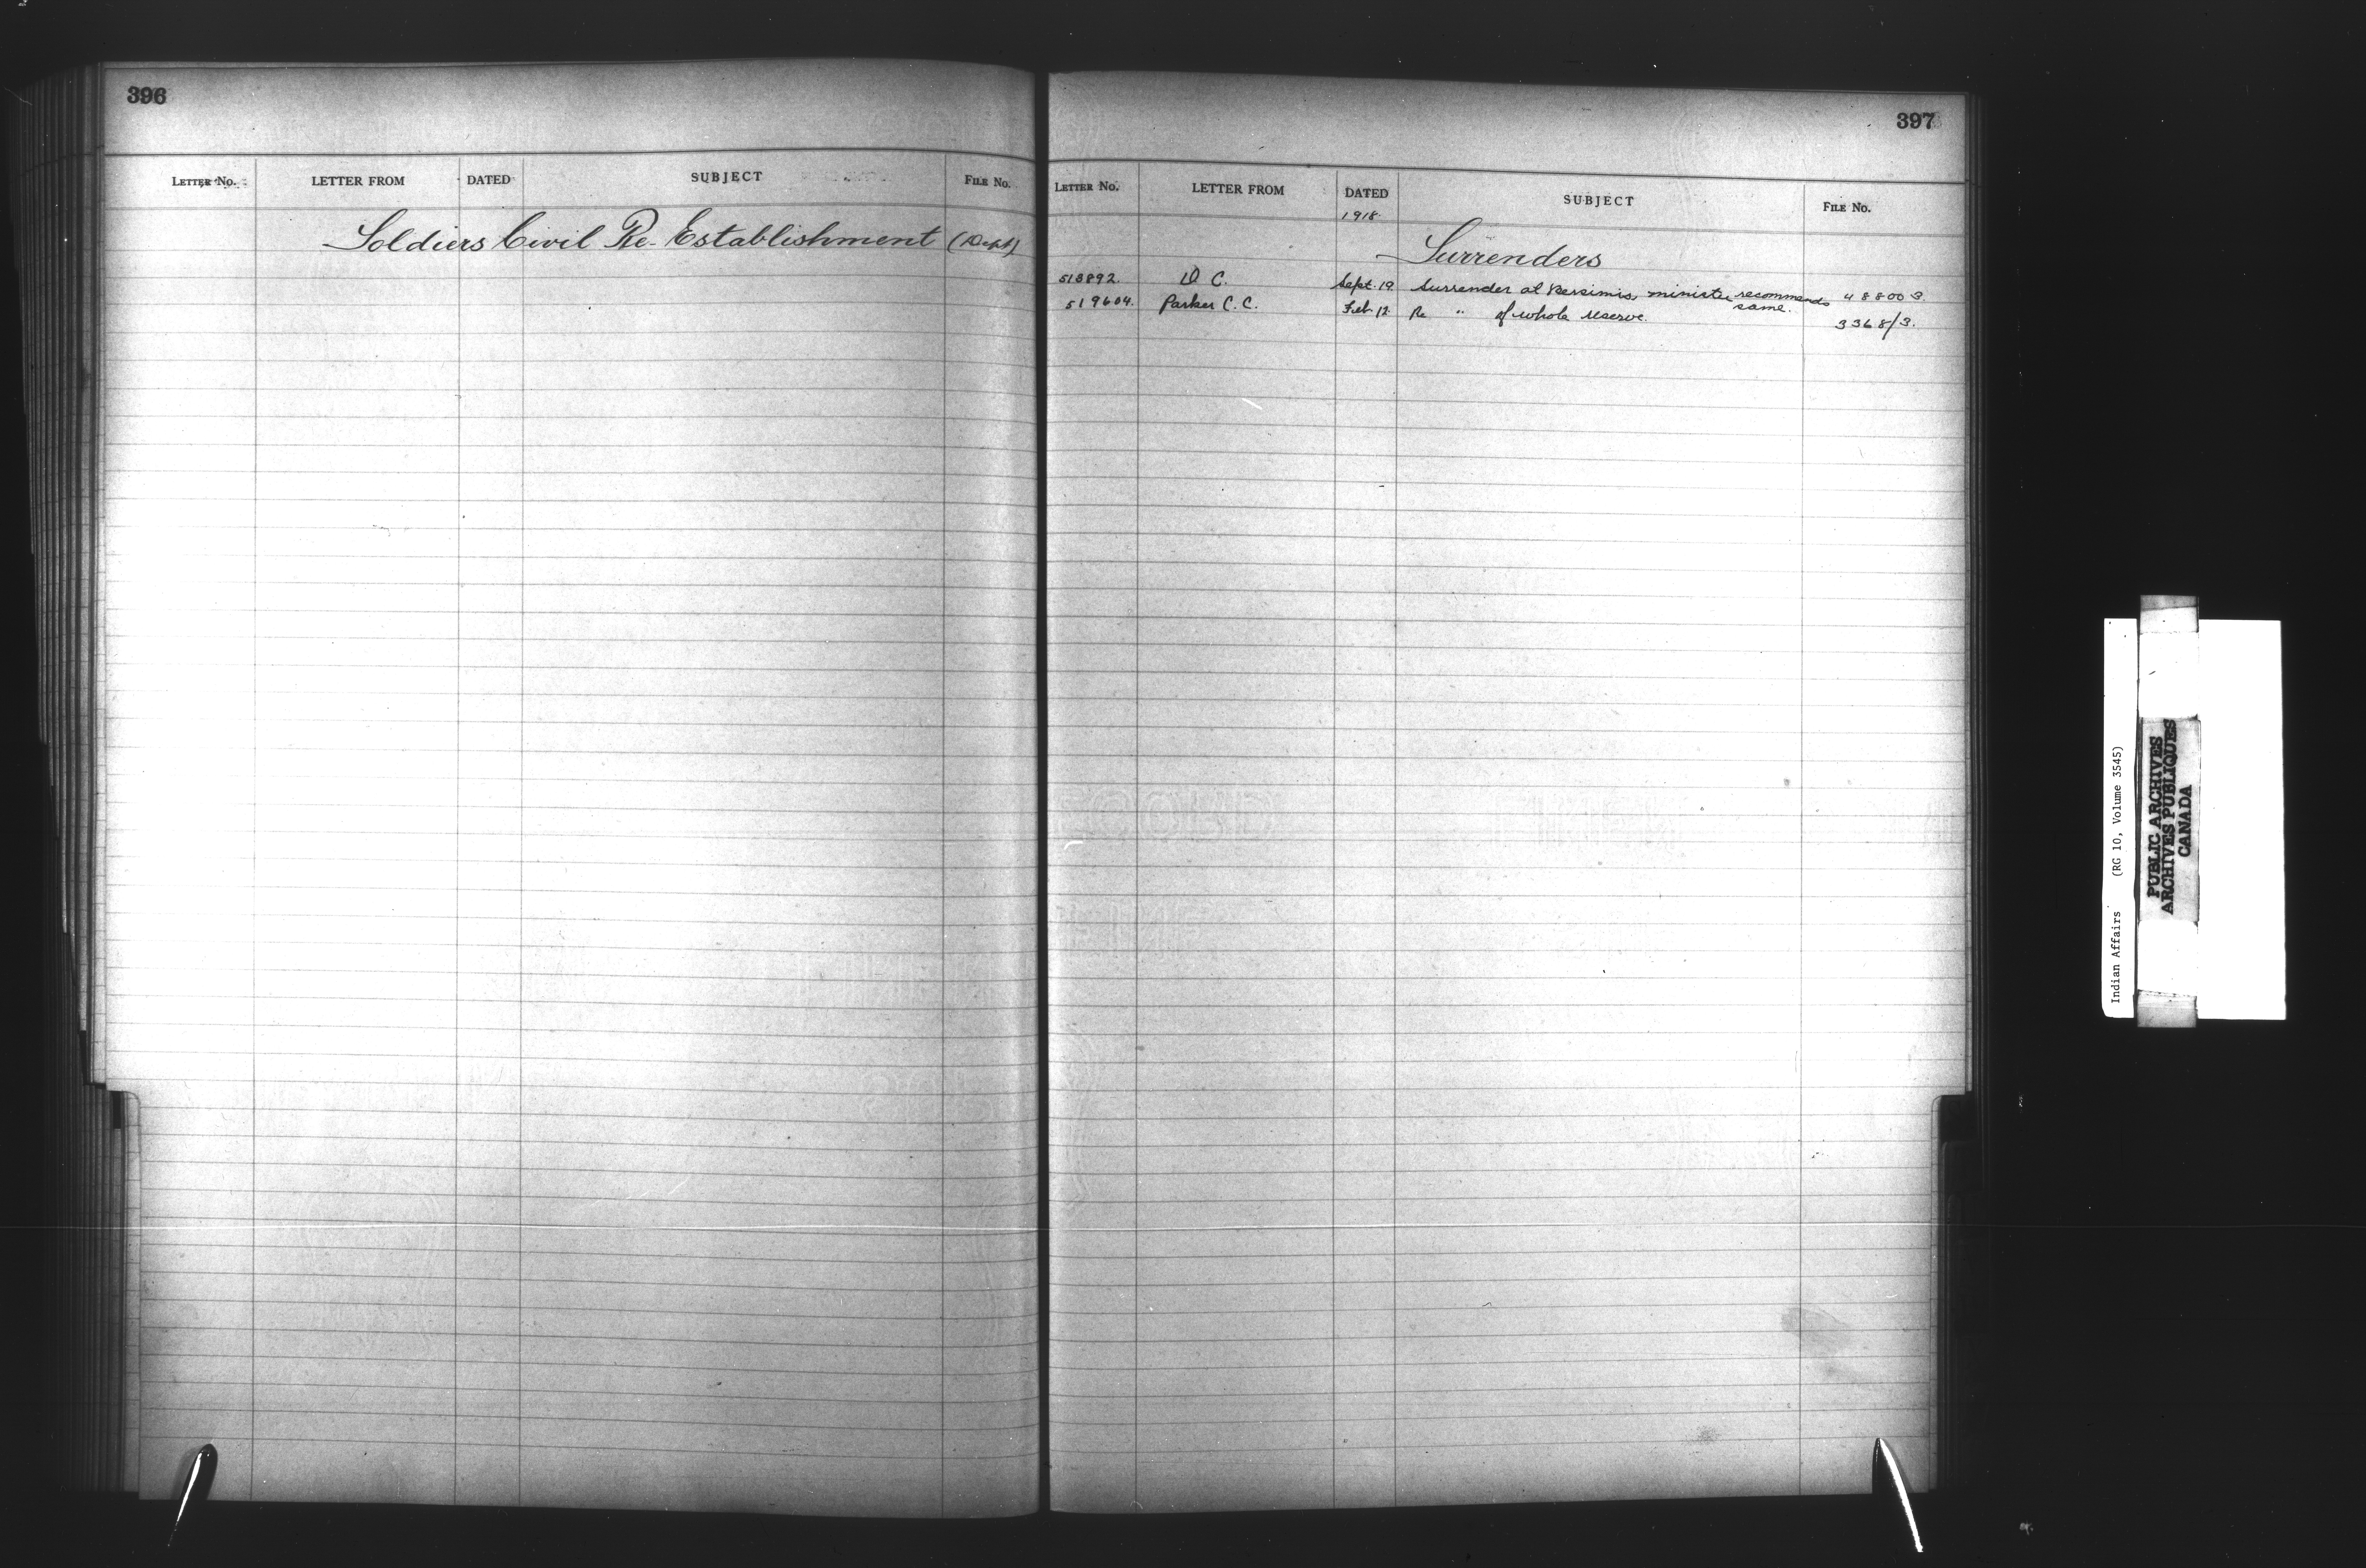 396
LETTER No. LETTER FROM DATED SUBJECT FILE No.
Soldiers Civil Re-Establishment (Dept)
397
LETTER No. LETTER FROM DATED SUBJECT FILE No.
1918.
Surrenders
513892. D C. Sept. 19 Surrender at Bersimis, minister recommends same. 48800 3.
519604. Parker C. C. Feb. 12. Re " of whole reserve. 3368/3.
Indian Affairs (RG 10, Volume 3545)
PUBLIC ARCHIVES
ARCHIVES PUBLIQUES
CANADA